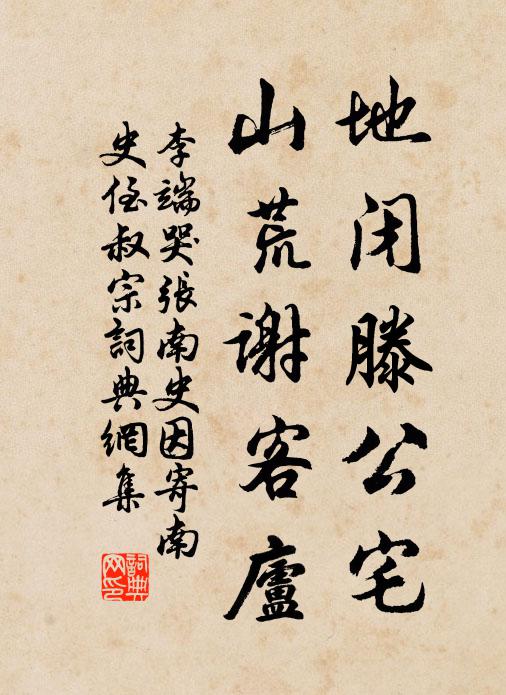 地闭滕公宅
山荒谢客廬
李端哭張南史因寄南
史侄叔宗詞典網集
詞典网印